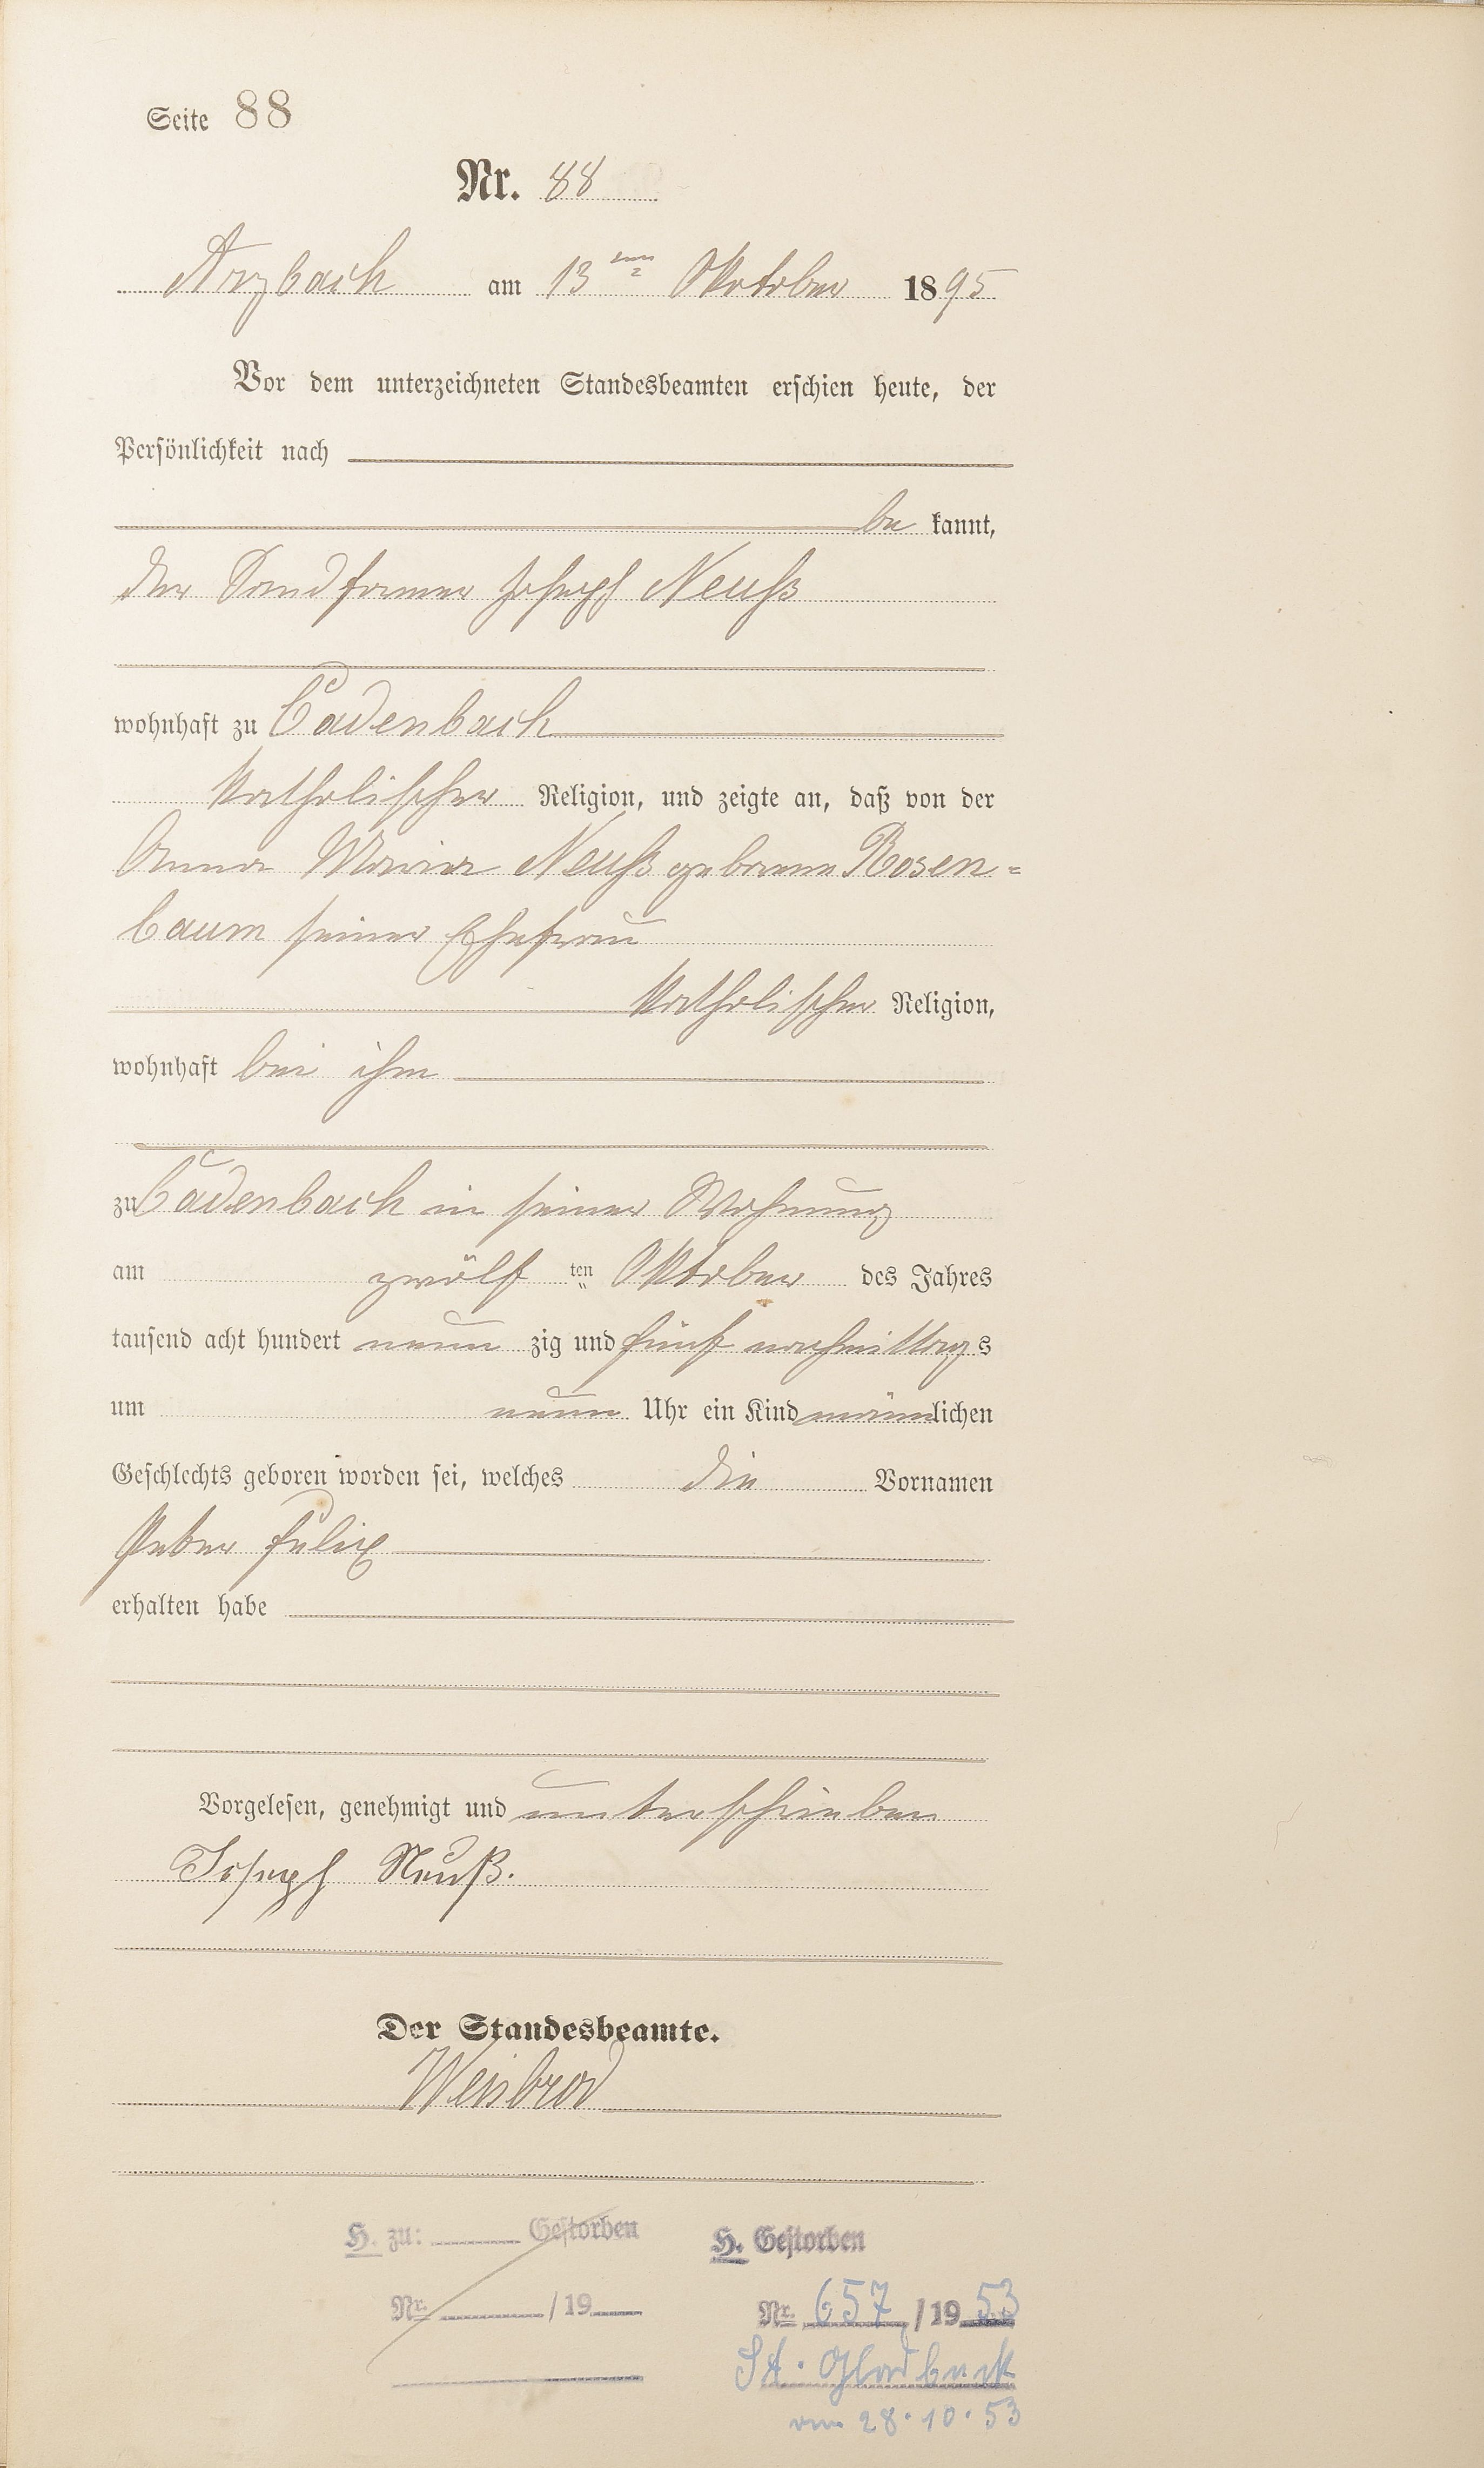 Seite 88
Nr. 88
Arzbach am 13ten Oktober 1895
Vor dem unterzeichneten Standesbeamten erschien heute, der
Persönlichkeit nach
be kannt,
der Sandformer Joseph Neuß
wohnhaft zu Cadenbach
katholischer Religion, und zeigte an, daß von der
Anna Maria Neuß geborene Rosen=
baum seiner Ehefrau
katholischer Religion,
wohnhaft bei ihm
zu Cadenbach in seiner Wohnung
am zwölf ten Oktober des Jahres
tausend acht hundert neun zig und fünf nachmittags
um neun Uhr ein Kind männlichen
Geschlechts geboren worden sei, welches die Vornamen
Peter Felix
erhalten habe
Vorgelesen, genehmigt und unterschrieben
Joseph Neuß.
Der Standesbeamte.
Weisbrod
H. zu: Gestorben
Nr. /19
H. Gestorben
Nr. 657 /19 53
St. Gladbeck
vom 28.10.53